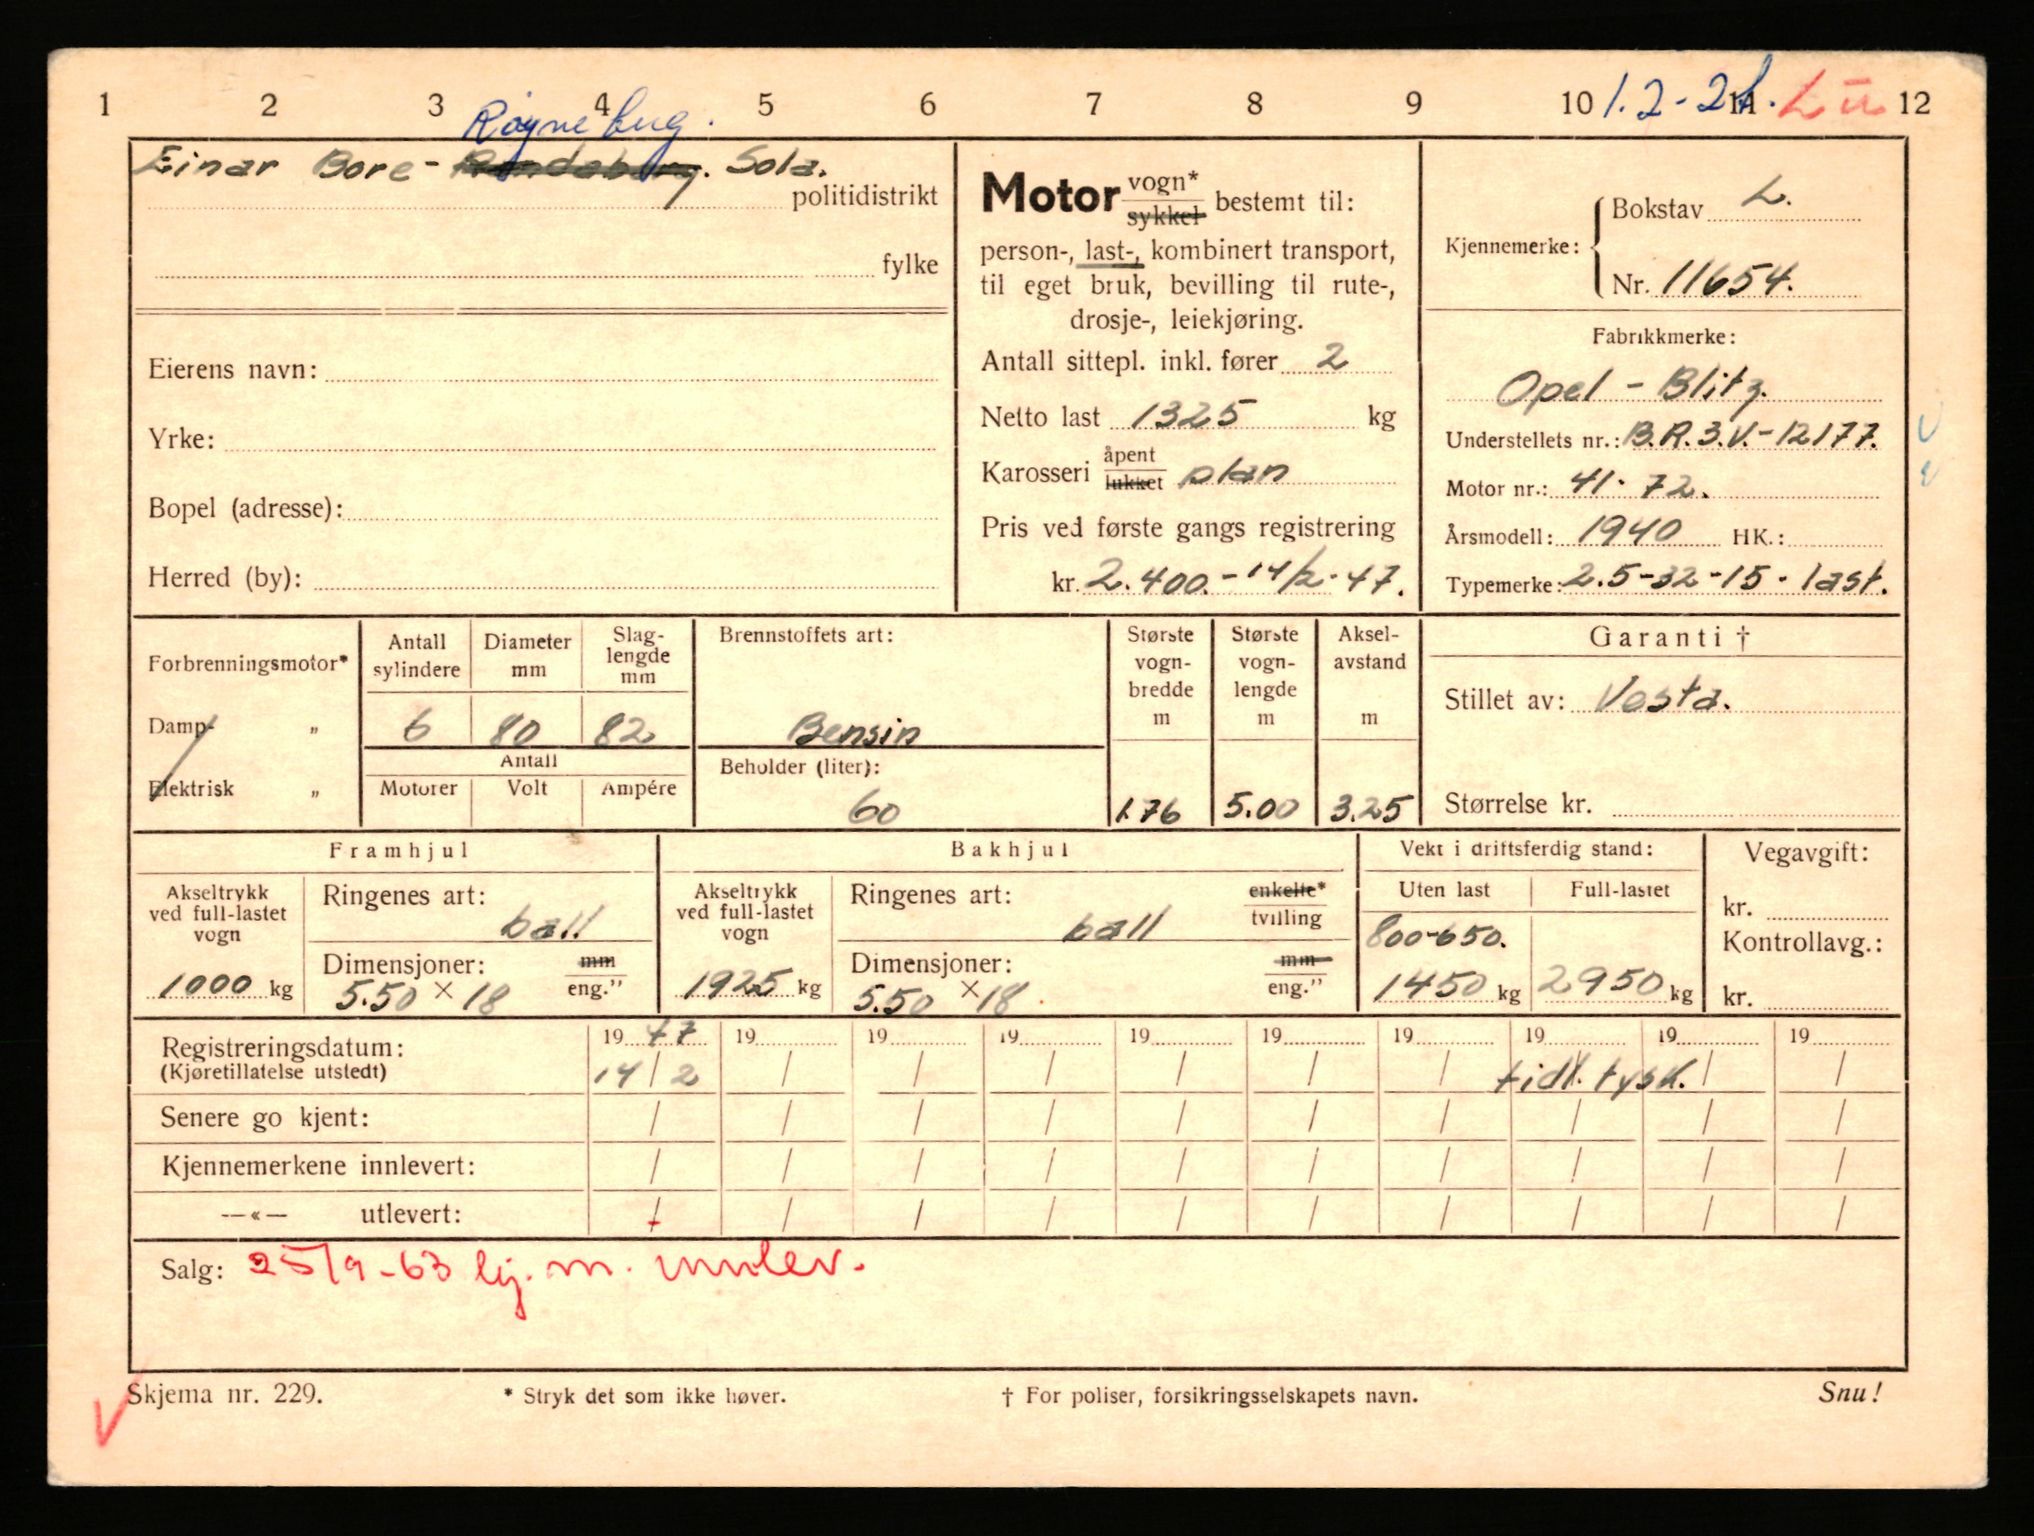 1 2 3 4 5 6 7 8 9 10 11 12
1.2-2
Røyneberg.
Einar Bore - Randaberg. Sola.
politidistrikt
fylke
Eierens navn:
Yrke:
Bopel (adresse):
Herred (by):
Motor vogn* sykkel bestemt til:
person-, last-, kombinert transport,
til eget bruk, bevilling til rute-,
drosje-, leiekjøring.
Antall sittepl. inkl. fører 2
Netto last 1325 kg
Karosseri åpent lukket plan
Pris ved første gangs registrering
kr. 2.400.- 14/2-47.
Kjennemerke:
Bokstav L.
Nr. 11654.
Fabrikkmerke:
Opel - Blitz.
Understellets nr.: B.R.3.V.-12177.
Motor nr.: 41-72.
Årsmodell: 1940 HK.:
Typemerke: 2.5-32-15. last.
Forbrenningsmotor*
Damp- „
Elektrisk „
Antall sylindere
Diameter mm
Slag-lengde mm
6 80 82
Antall
Motorer Volt Ampére
Brennstoffets art:
Bensin
Beholder (liter):
60
Største vogn-bredde m
1.76
Største vogn-lengde m
5.00
Aksel-avstand m
3.25
Garanti †
Stillet av: Vesta.
Størrelse kr.
Framhjul
Akseltrykk ved full-lastet vogn
1000 kg
Ringenes art:
ball
Dimensjoner: mm eng."
5.50 × 18
Bakhjul
Akseltrykk ved full-lastet vogn
1925 kg
Ringenes art: enkelte* tvilling
ball
Dimensjoner: mm eng."
5.50 × 18.
Vekt i driftsferdig stand:
Uten last Full-lastet
800-650.
1450 kg 2950 kg
Vegavgift:
kr.
Kontrollavg.:
kr.
Registreringsdatum: 19 47 19 19 19 19 19 19 19 19 19
(Kjøretillatelse utstedt) 14/2 / / / / / / tidl. tysk. / /
Senere go kjent: / / / / / / / / / /
Kjennemerkene innlevert: / / / / / / / / / /
—«— utlevert: / / / / / / / / / /
Salg: 25/9-63 kj. m. innlev.
Skjema nr. 229.
* Stryk det som ikke høver.
† For poliser, forsikringsselskapets navn.
Snu!